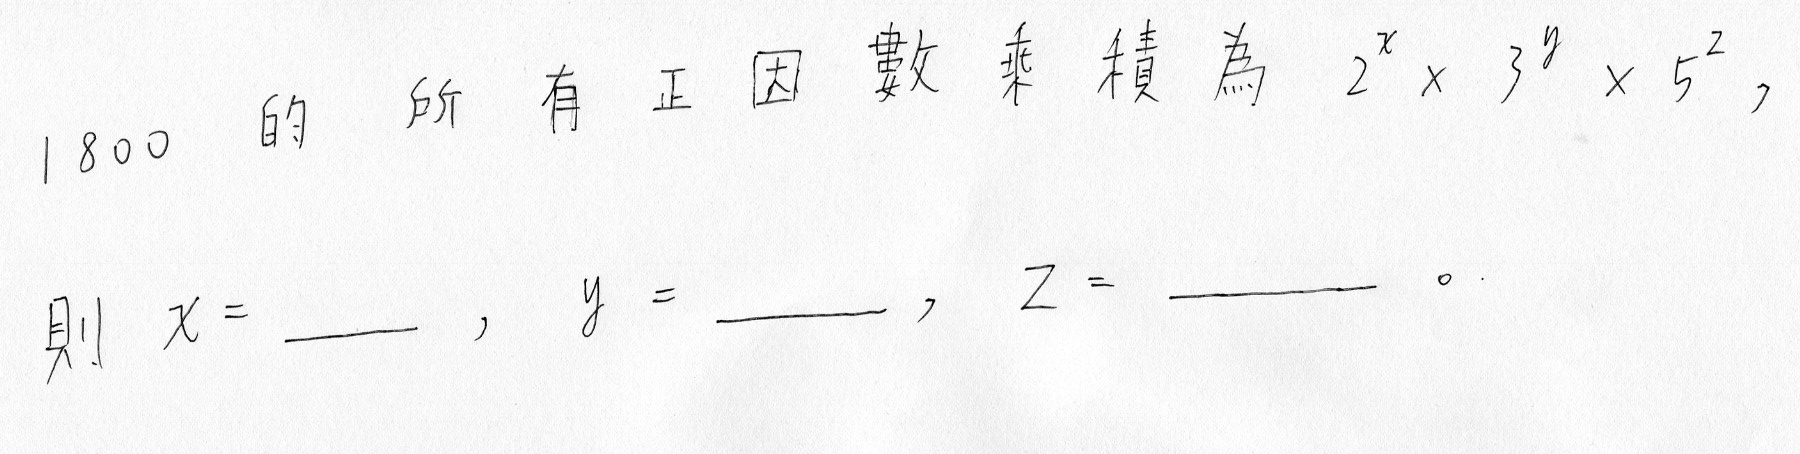 1800 的所有正因數乘積為 2^x × 3^y × 5^z,
則 x = ____ , y = ____ , z = ____ 。